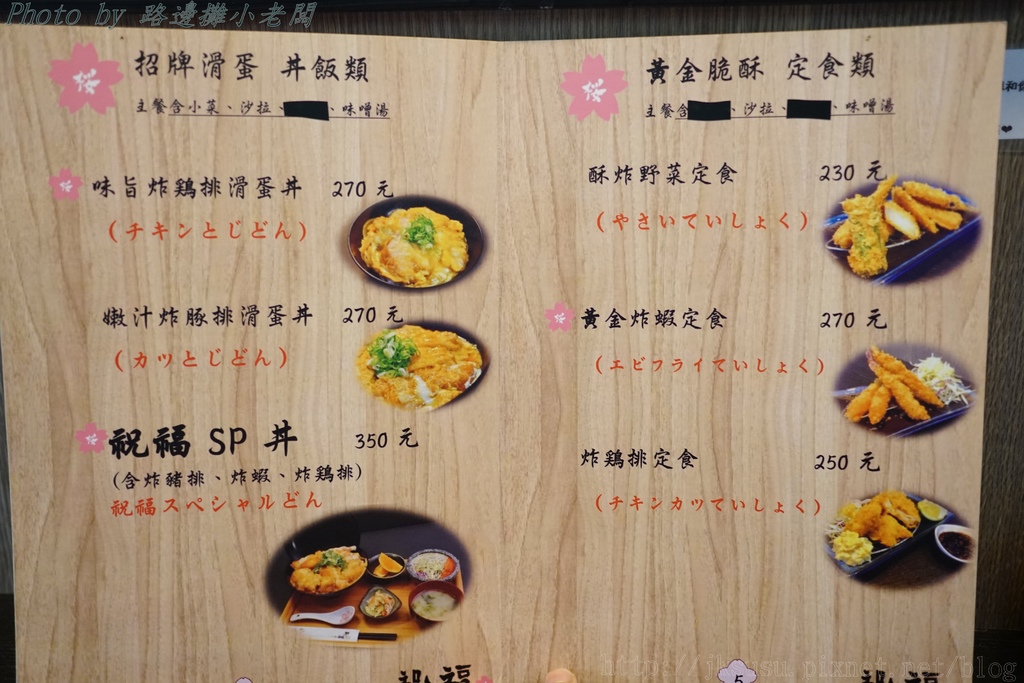 Photo by 路邊攤小老闆
招牌滑蛋 丼飯類
主餐含小菜、沙拉、 、味噌湯
味旨炸鶏排滑蛋丼 270 元
(チキンとじどん)
嫩汁炸豚排滑蛋丼 270 元
(カツとじどん)
祝福 SP 丼 350 元
(含炸豬排、炸蝦、炸鶏排)
祝福スペシャルどん
黃金脆酥 定食類
主餐含 、沙拉、 、味噌湯
酥炸野菜定食 230 元
(やさいていしょく)
黃金炸蝦定食 270 元
(エビフライていしょく)
炸鶏排定食 250 元
(チキンカツていしょく)
祝福
5
祝福